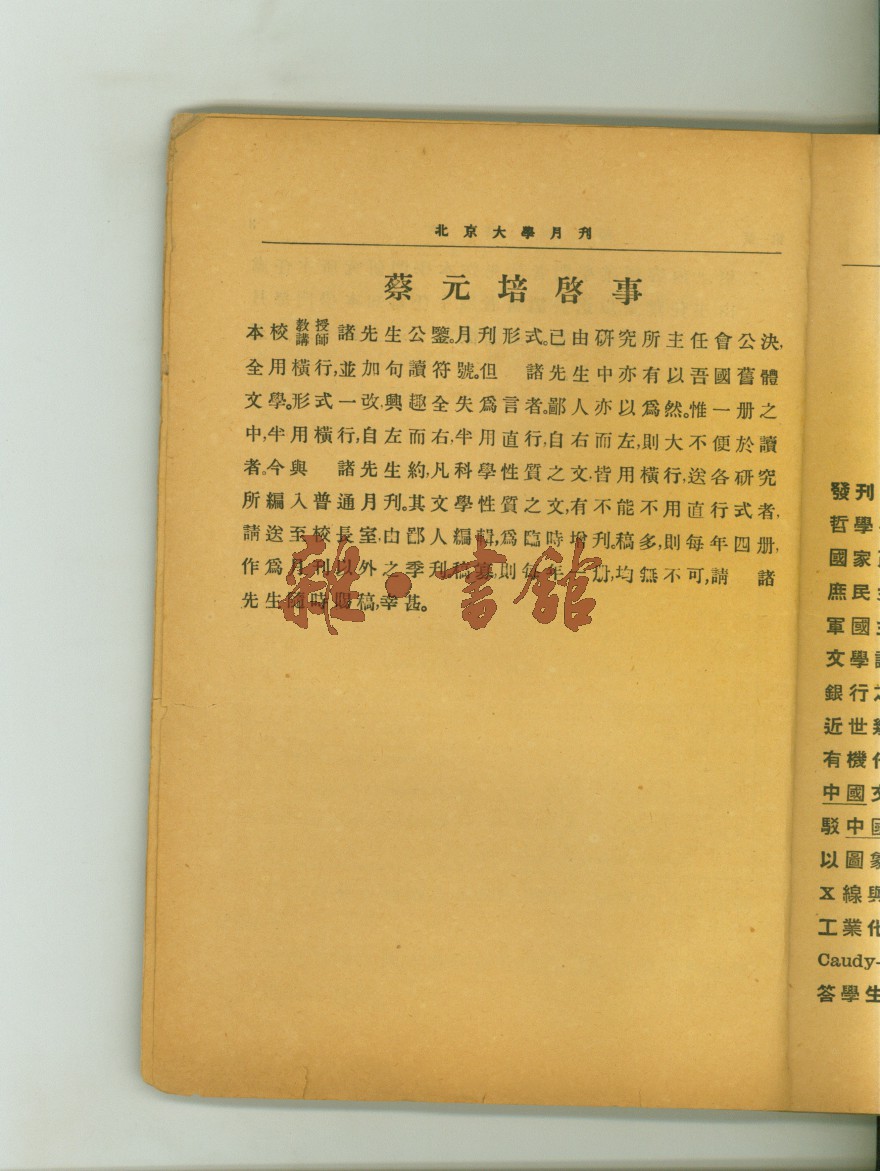 北京大學月刊
蔡元培啓事
本校教授講師諸先生公鑒。月刊形式。已由研究所主任會公決,
全用橫行,並加句讀符號。但　諸先生中亦有以吾國舊體
文學。形式一改,興趣全失爲言者。鄙人亦以爲然。惟一册之
中,半用橫行,自左而右,半用直行,自右而左,則大不便於讀
者。今與　諸先生約,凡科學性質之文,皆用橫行,送各研究
所編入普通月刊。其文學性質之文,有不能不用直行式者,
請送至校長室,由鄙人編輯,爲臨時增刊。稿多,則每年四册,
作爲月刊以外之季刊稿寡,則每年册,均無不可,請　諸
先生隨時賜稿,幸甚。
雜·書館
發刊
哲學
國家
庶民
軍國
文學
銀行
近世
有機
中國
駁中國
以圖
X線與
工業
Caudy-
答學生